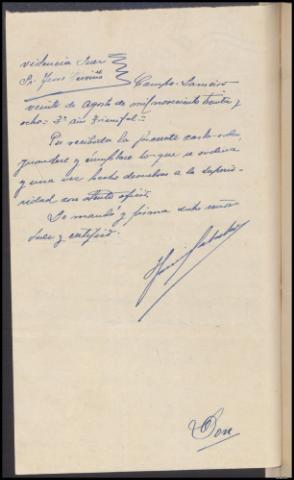 videncia Juez
Sr. 
Campo-Lameiro
veinte de agosto de mil novecientos treinta y
ocho = 3er año triunfal =
Por recibida la presente carta-orden
guardese y cumplase lo que se ordena
y una vez hecho devuelvase a la superio-
ridad con atento oficio.
Lo mandó y firma dicho señor
Juez y certifico.
Don